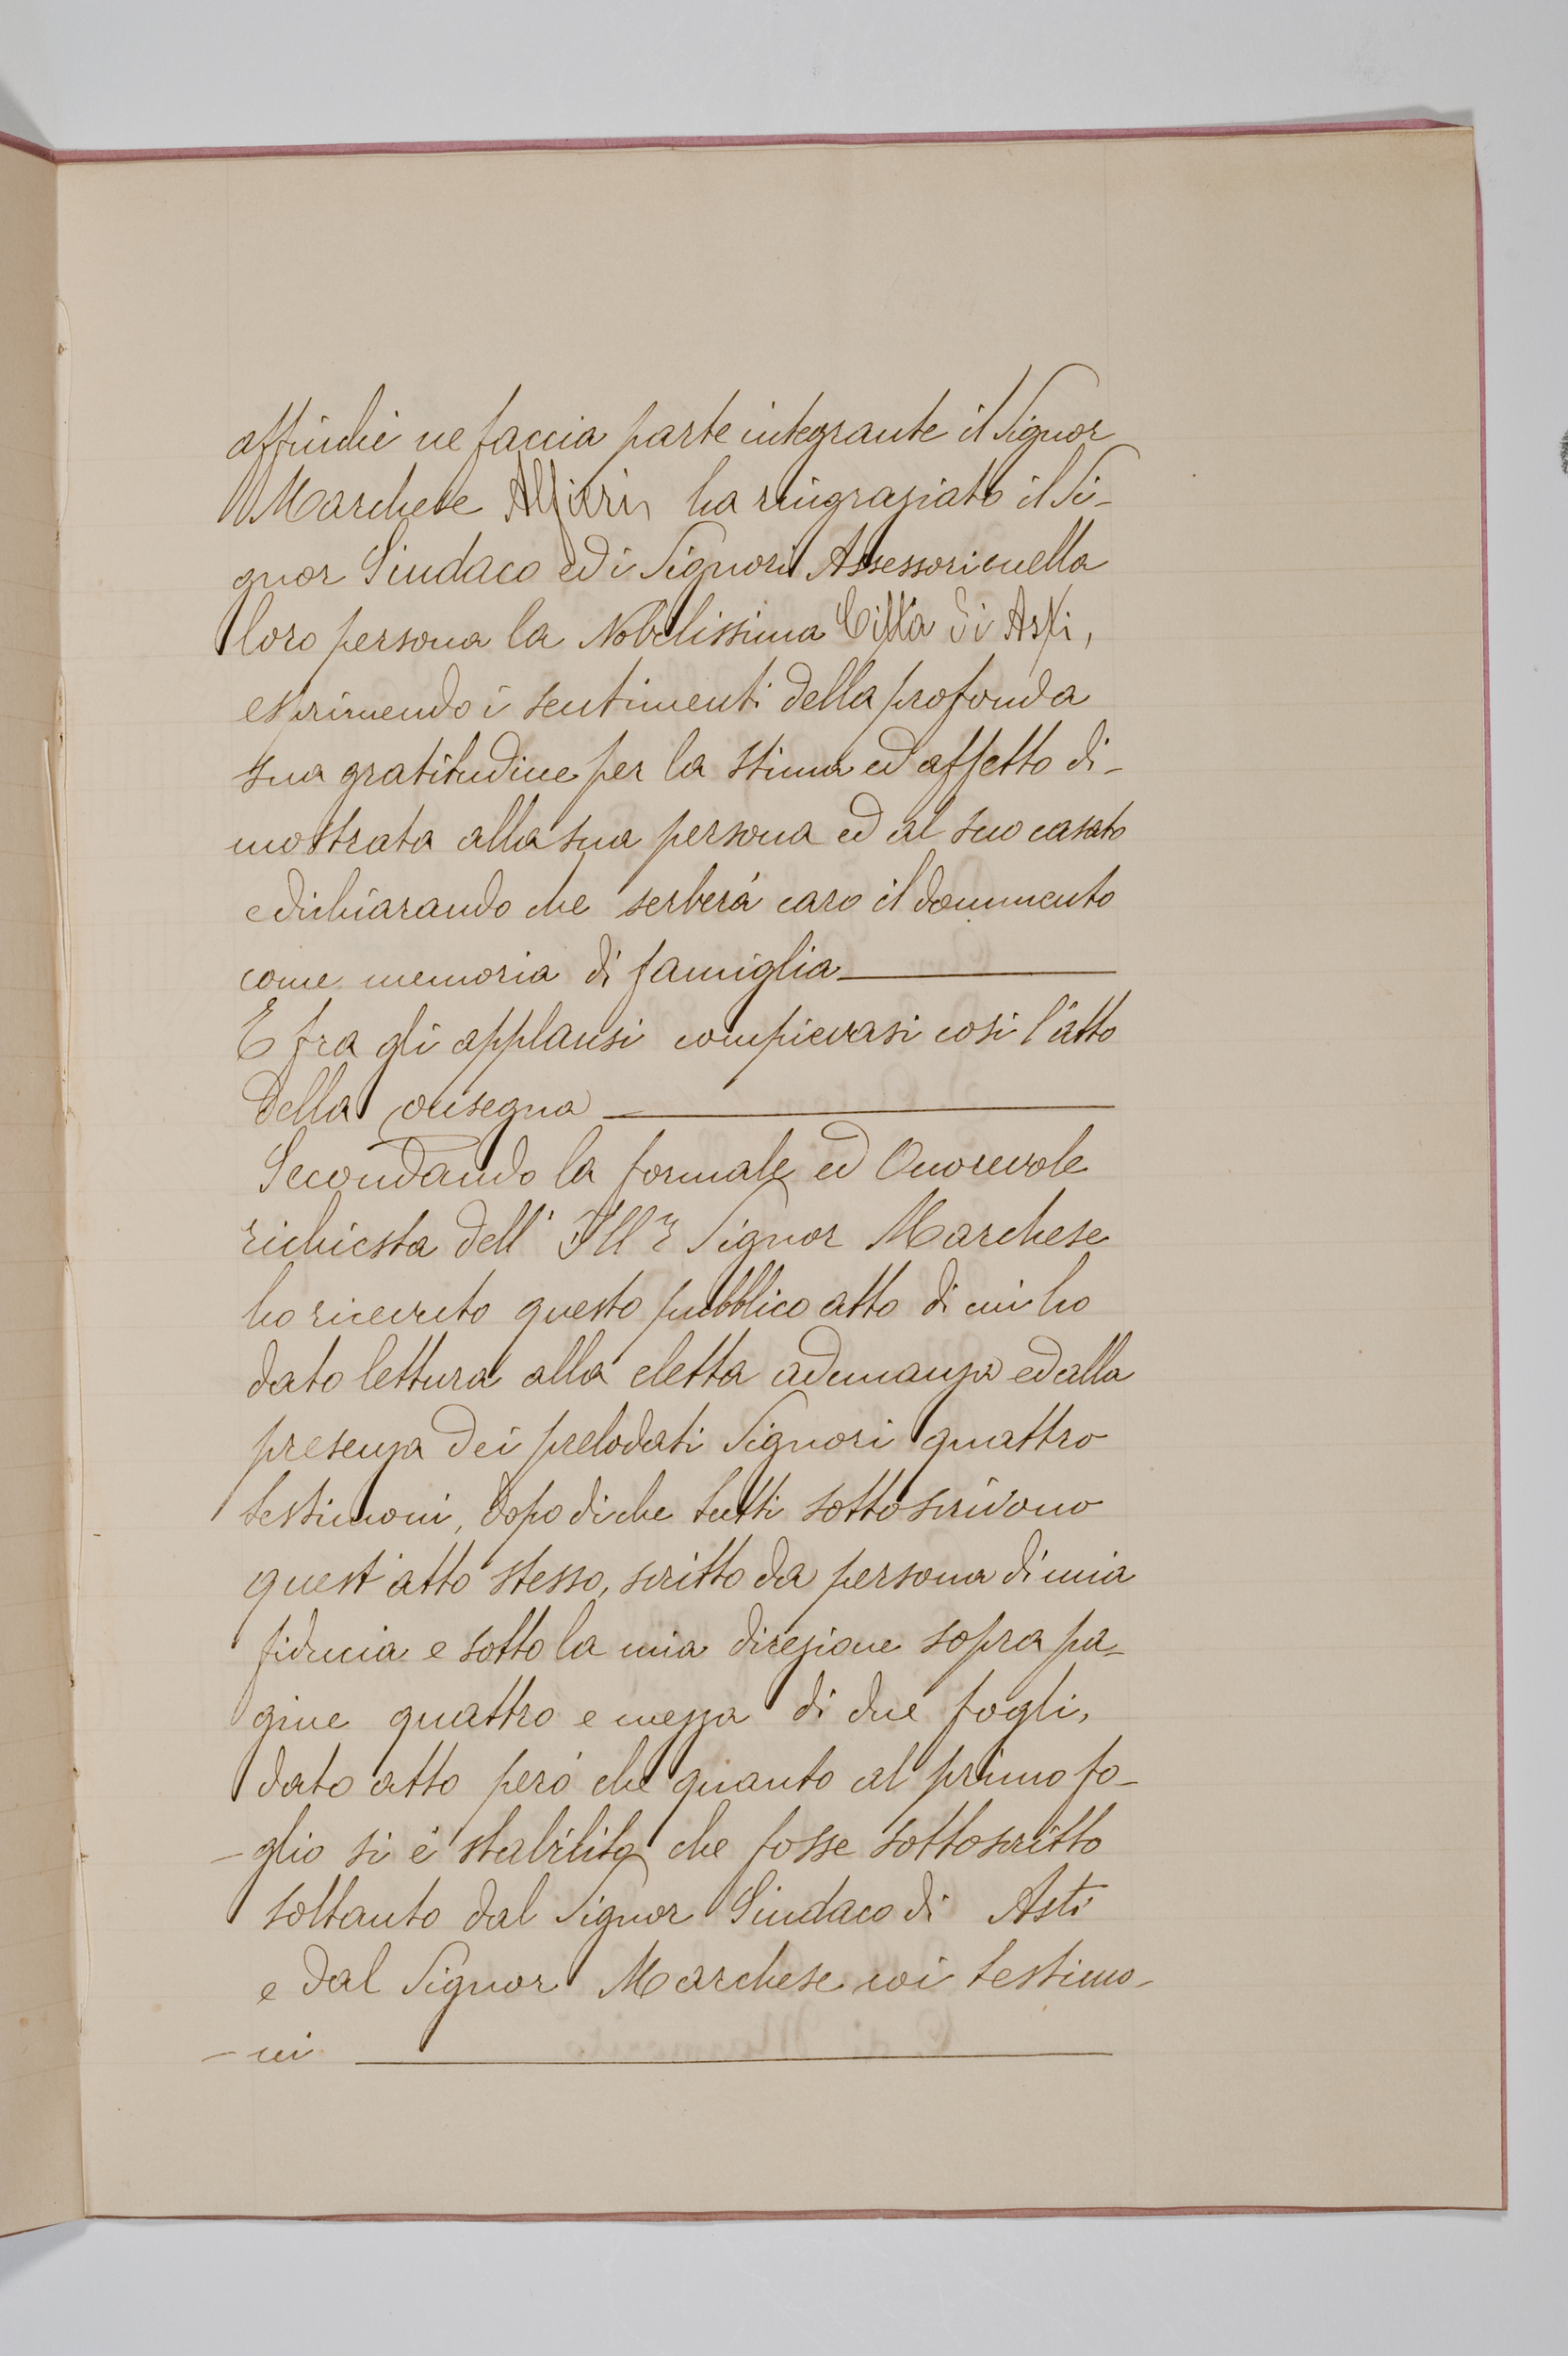 affinchè ne faccia parte integrante il Signor
Marchese Alfieri ha ringraziato il Si-
gnor Sindaco ed i Signori Assessori e nella
loro persona la Nobilissima Città di Asti,
esprimendo i sentimenti della profonda
sua gratitudine per la stima ed affetto di-
mostrata alla sua persona ed al suo casato
e dichiarando che serberá caro il documento
come memoria di famiglia
E fra gli applausi compievasi così l'atto
della consegna
Secondando la formale ed Onorevole
richiesta dell' Ill.r Signor Marchese
ho ricevuto questo pubblico atto di cui ho
dato lettura alla eletta adunanza ed alla
presenza dei prelodati Signori quattro
testimoni, dopo di che tutti sottoscrivono
quest'atto stesso, scritto da persona di mia
fiducia e sotto la mia direzione sopra pa-
gine quattro e mezza di due fogli,
dato atto peró che quanto al primo fo-
-glio si é stabilito che fosse sottoscritto
soltanto dal Signor Sindaco di Asti
e dal Signor Marchese coi testimo-
-ni